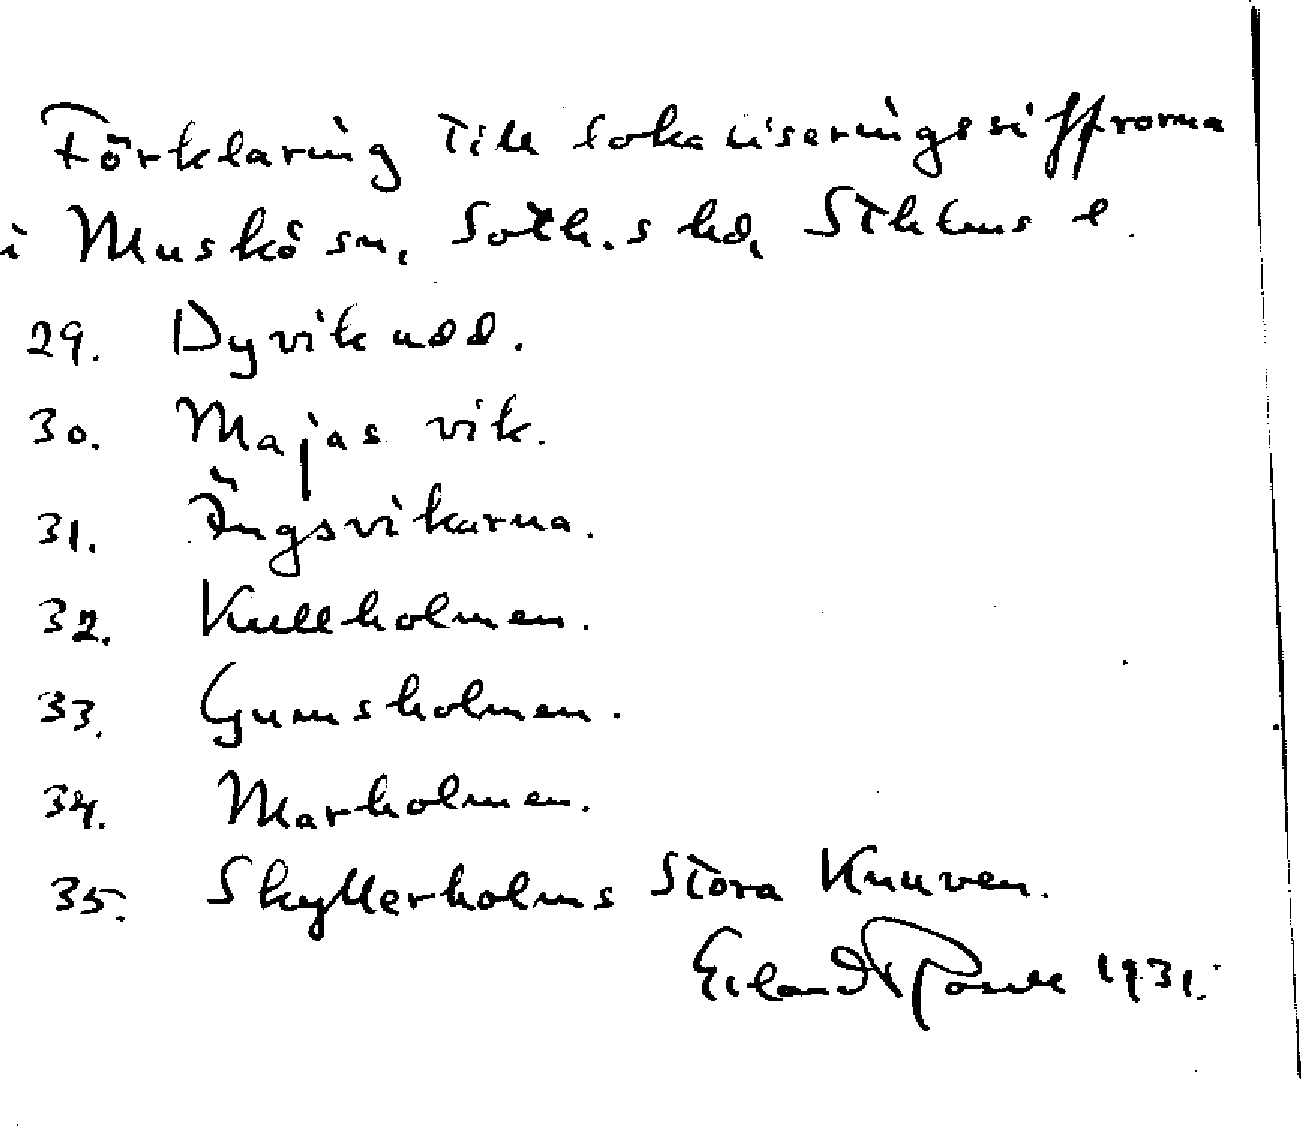 Förklaring till lokaliseringssiffrorna
i Muskö sn, Soth.s hd, Sthlms l.
29. Dyvik udd.
30. Majas vik.
31. Ängsvikarna.
32. Kullholmen.
33. Gumsholmen.
34. Marholmen.
35. Skytterholms Stora Knuven.
Erland Rosell 1931.